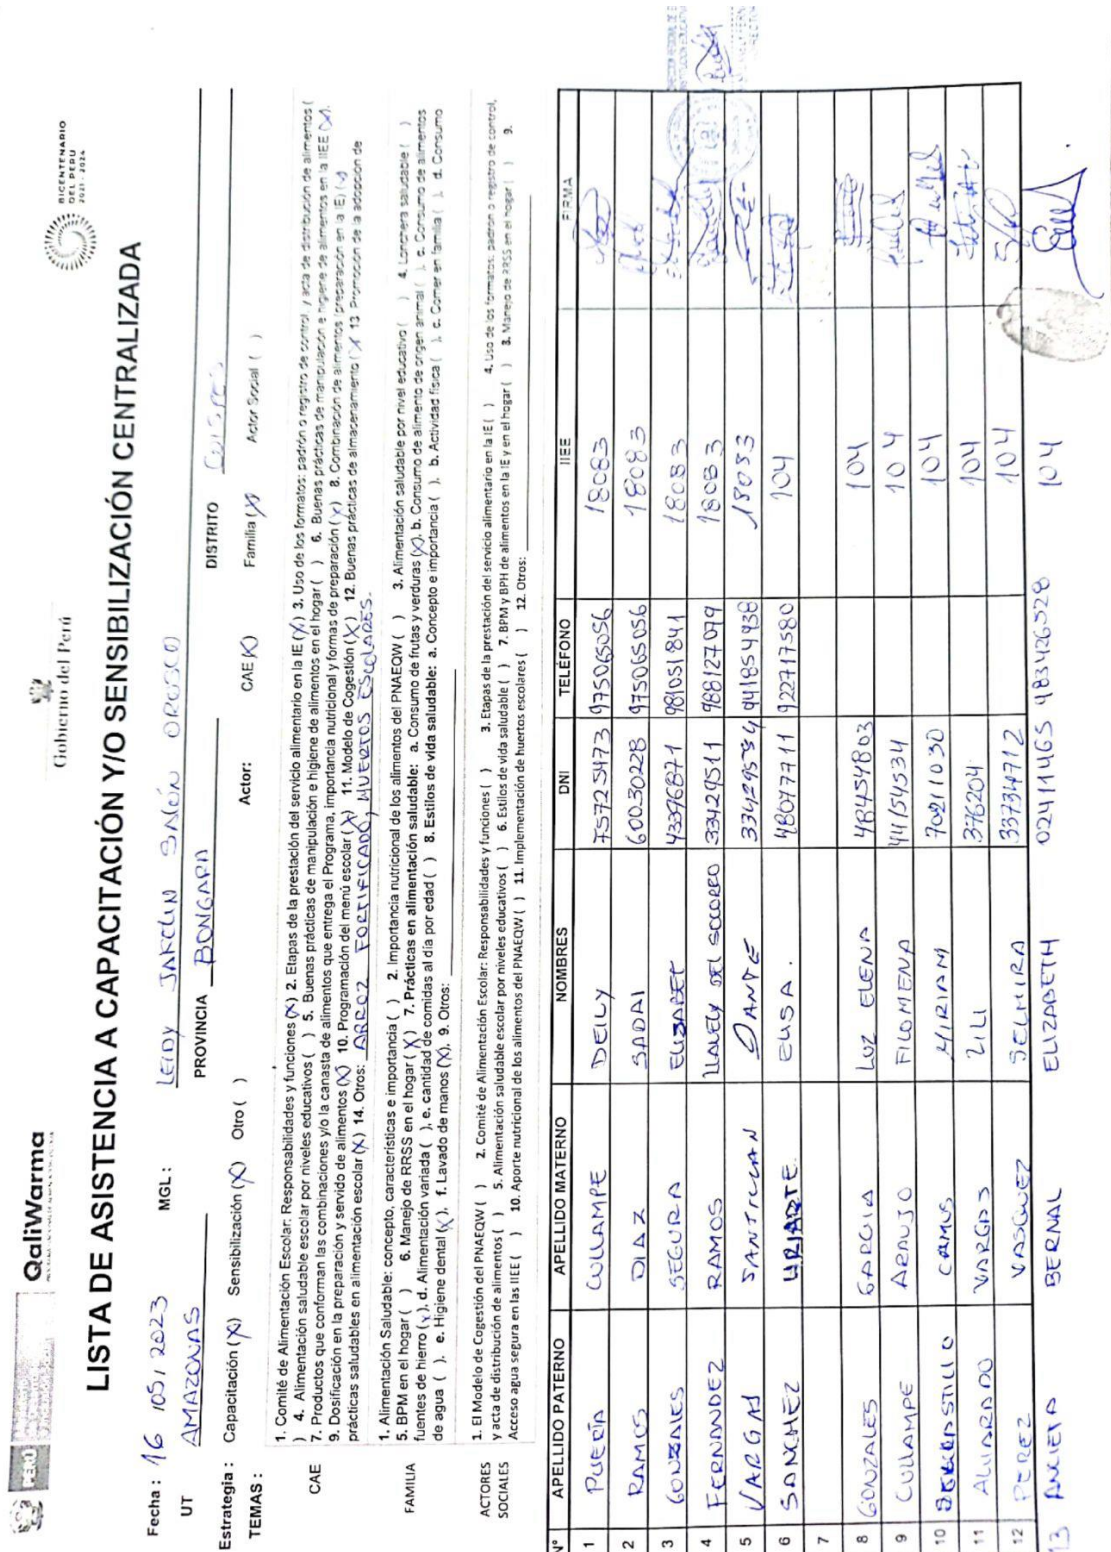 PERÚ
QaliWarma
Gobierno del Perú
BICENTENARIO
DEL PERÚ
2021 - 2024
LISTA DE ASISTENCIA A CAPACITACIÓN Y/O SENSIBILIZACIÓN CENTRALIZADA
Fecha : 16 105 / 2023 MGL : LEIDY JAKELIN SALÓN OROSCO
UT AMAZONAS PROVINCIA BONGARA DISTRITO
Estrategia : Capacitación (X) Sensibilización (X) Otro ( ) Actor: CAE (X) Familia (X) Actor Social ( )
TEMAS :
CAE
1. Comité de Alimentación Escolar: Responsabilidades y funciones (X) 2. Etapas de la prestación del servicio alimentario en la IE (X) 3. Uso de los formatos: padrón o registro de control, y acta de distribución de alimentos (
) 4. Alimentación saludable escolar por niveles educativos ( ) 5. Buenas prácticas de manipulación e higiene de alimentos en el hogar ( ) 6. Buenas prácticas de manipulación e higiene de alimentos en la IIEE (X).
7. Productos que conforman las combinaciones y/o la canasta de alimentos que entrega el Programa, importancia nutricional y formas de preparación (X) 8. Combinación de alimentos (preparación en la IE) (X)
9. Dosificación en la preparación y servido de alimentos (X) 10. Programación del menú escolar (X) 11. Modelo de Cogestión (X) 12. Buenas prácticas de almacenamiento (X 13. Promoción de la adopción de
prácticas saludables en alimentación escolar (X) 14. Otros: ARROZ FORTIFICADO, HUERTOS ESCOLARES.
FAMILIA
1. Alimentación Saludable: concepto, características e importancia ( ) 2. Importancia nutricional de los alimentos del PNAEQW ( ) 3. Alimentación saludable por nivel educativo ( ) 4. Lonchera saludable ( )
5. BPM en el hogar ( ) 6. Manejo de RRSS en el hogar (X) 7. Prácticas en alimentación saludable: a. Consumo de frutas y verduras (X), b. Consumo de alimento de origen animal ( ), c. Consumo de alimentos
fuentes de hierro (X), d. Alimentación variada ( ), e. cantidad de comidas al día por edad ( ) 8. Estilos de vida saludable: a. Concepto e importancia ( ), b. Actividad física ( ), c. Comer en familia ( ), d. Consumo
de agua ( ), e. Higiene dental (X), f. Lavado de manos (X), 9. Otros:
ACTORES SOCIALES
1. El Modelo de Cogestión del PNAEQW ( ) 2. Comité de Alimentación Escolar: Responsabilidades y funciones ( ) 3. Etapas de la prestación del servicio alimentario en la IE ( ) 4. Uso de los formatos: padrón o registro de control,
y acta de distribución de alimentos ( ) 5. Alimentación saludable escolar por niveles educativos ( ) 6. Estilos de vida saludable ( ) 7. BPM y BPH de alimentos en la IE y en el hogar ( ) 8. Manejo de RRSS en el hogar ( ) 9.
Acceso agua segura en las IIEE ( ) 10. Aporte nutricional de los alimentos del PNAEQW ( ) 11. Implementación de huertos escolares ( ) 12. Otros:
N° APELLIDO PATERNO APELLIDO MATERNO NOMBRES DNI TELÉFONO IIEE FIRMA
1 PUERTA CULLAMPE DEILY 75725473 975065056 18083
2 RAMOS DIAZ SADAI 60030228 975065056 18083
3 GONZALES SEGURA ELIZABET 43396871 981051841 18083
4 FERNANDEZ RAMOS LLALELY DEL SOCORRO 33429511 988127079 18083
5 VARGAS SANTILLAN DANTE 941854938 18083
6 SANCHEZ URIARTE ELISA. 48077711 922717580 104
7
8 GONZALES GARCIA LUZ ELENA 48454803 104
9 CULLAMPE ARAUJO FILOMENA 44154534 104
10 CAMUS MIRIAM 70211030 104
11 ALVARADO VARGAS LILI 376204 104
12 PEREZ VASQUEZ SELMIRA 33734712 104
13 ANCIETA BERNAL ELIZABETH 02411465 983426528 104